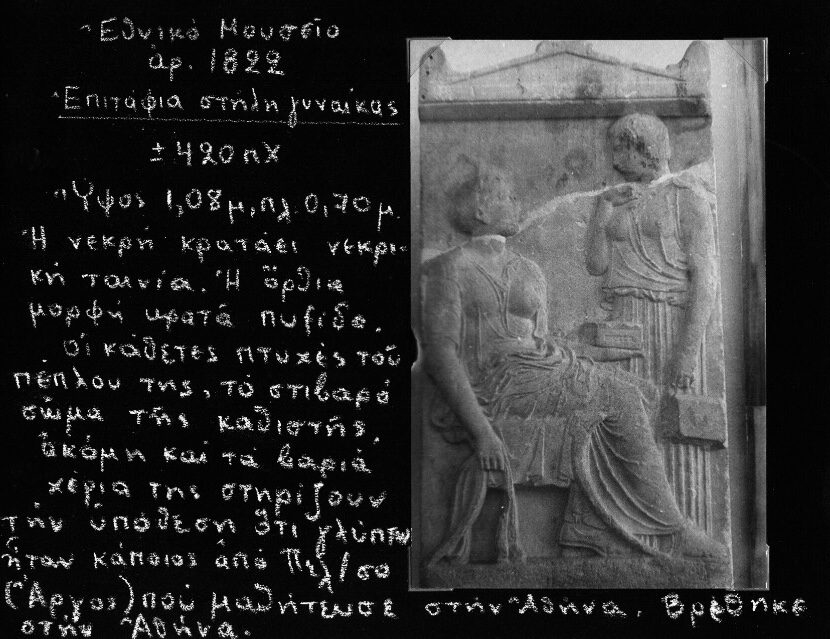 Ἐθνικό Μουσείο
ἀρ. 1822
Ἐπιτάφια στήλη γυναίκας
±420 πΧ
Ὕψος 1,08μ, πλ. 0,70μ.
Ἡ νεκρή κρατάει νεκρι-
κή ταινία. Ἡ ὄρθια
μορφή κρατά πυξίδα.
Οἱ κάθετες πτυχές τοῦ
πέπλου της, τό στιβαρό
σῶμα τῆς καθιστῆς.
ἀκόμη καί τά βαριά
χέρια της στηρίζουν
τήν ὑπόθεση ὅτι γλύπτης
ἦταν κάποιος ἀπό Πελ/σο
(Ἄργος) πού μαθήτευσε στήν Ἀθήνα. Βρέθηκε
στήν Ἀθήνα.